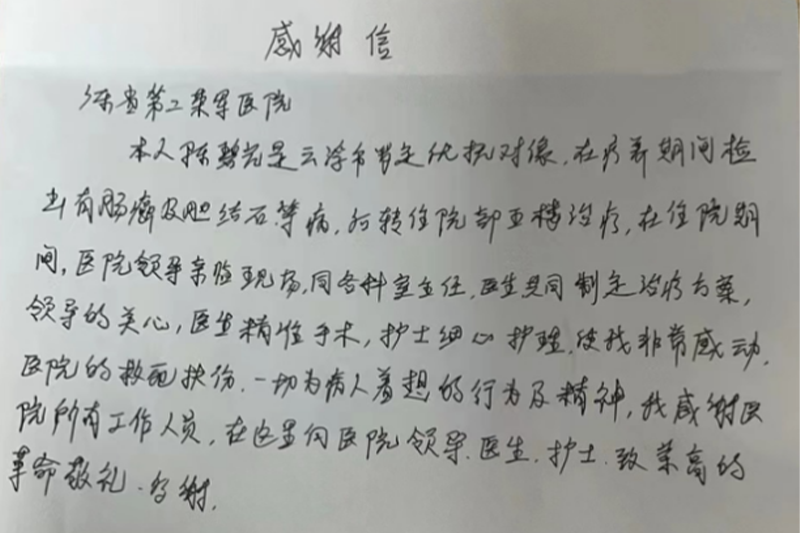 感谢信
广东省第二荣军医院
本人陈碧光是云浮市罗定优抚对像,在疗养期间检
出有肠癌及胆结石等病,后转住院部亚精治疗,在住院期
间,医院领导亲临现场,同各科室主任、医生共同制定治疗方案,
领导的关心,医生精准手术,护士细心护理,使我非常感动,
医院的救死扶伤,一切为病人着想的行为及精神,我感谢医
院所有工作人员,在这里向医院领导、医生、护士、致崇高的
革命敬礼。多谢。